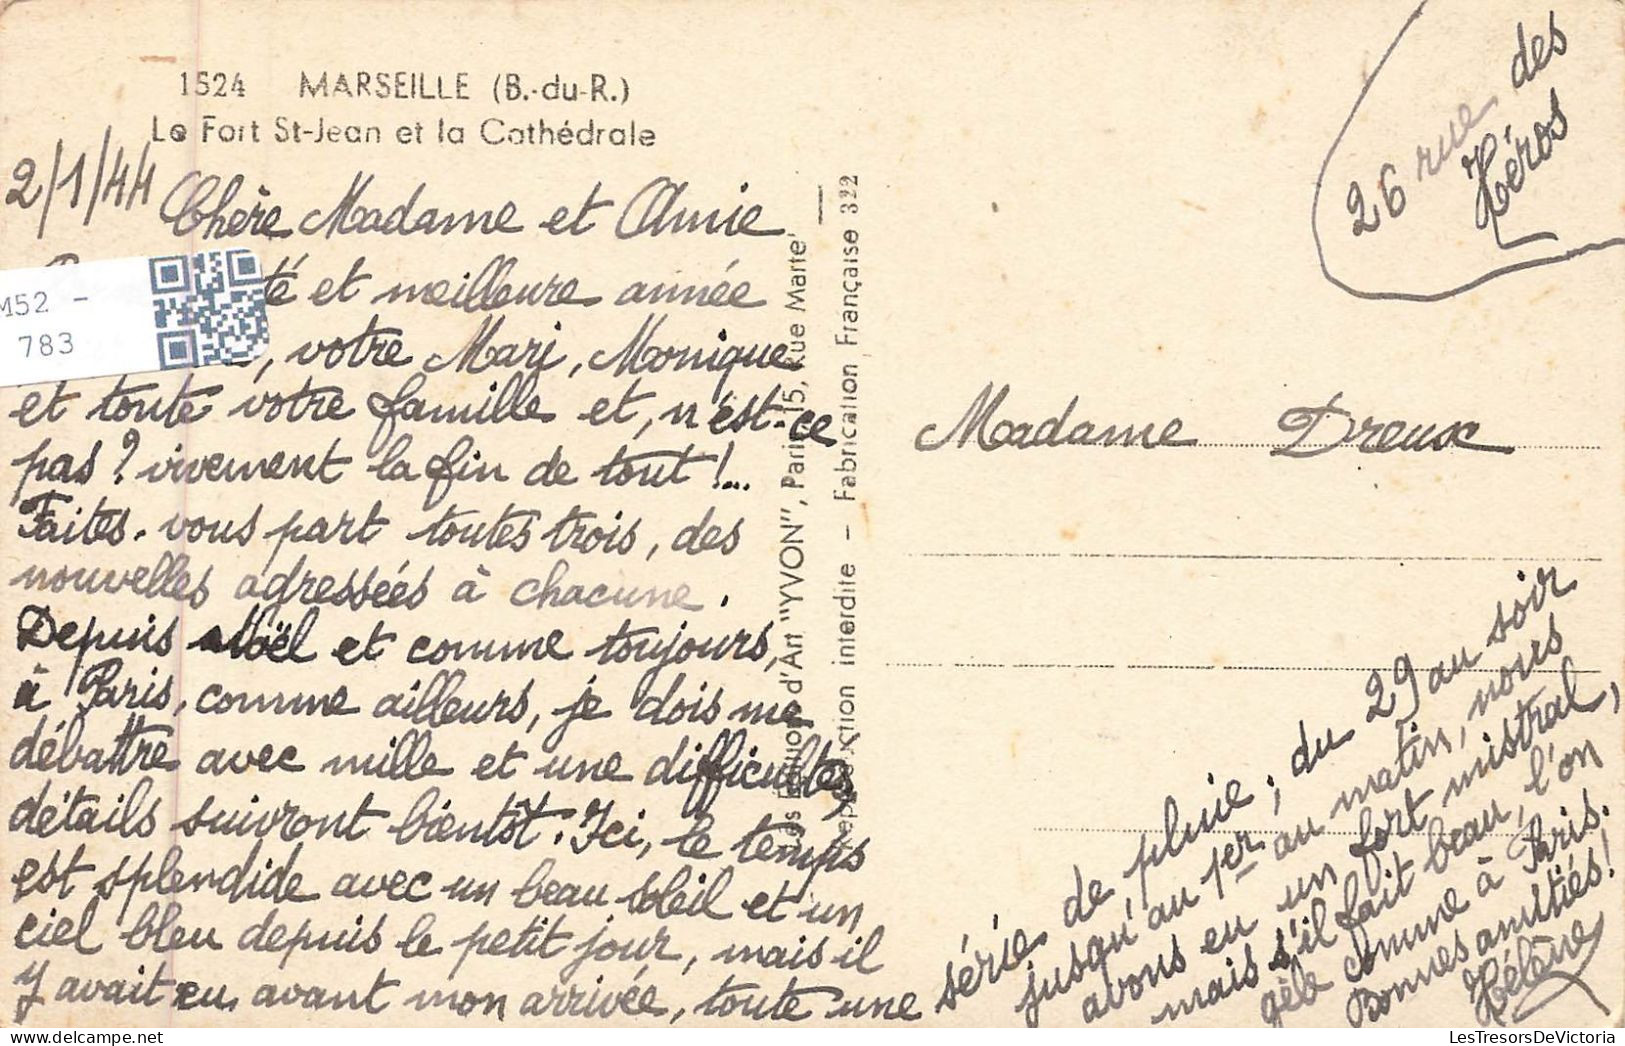 1524 MARSEILLE (B.-du-R.)
Le Fort St-Jean et la Cathédrale
2/1/44
Chère Madame et Amie
té et meilleure année
, votre Mari, Monique
et toute votre famille et, n'est-ce
pas ? vivement la fin de tout !...
Faites-vous part toutes trois, des
nouvelles adressées à chacune.
Depuis Noël et comme toujours,
à Paris, comme ailleurs, je dois me
débattre avec mille et une difficultés,
détails suivront bientôt. Ici, le temps
est splendide avec un beau soleil et un
ciel bleu depuis le petit jour, mais il
y avait eu, avant mon arrivée, toute une
série de pluie ; du 29 au soir
jusqu'au 1er au matin, nous
avons eu un fort mistral,
mais s'il fait beau, l'on
gèle comme à Paris.
Bonnes amitiés !
Hélène
M52 -
783
d'Art "YVON", Paris-15, Rue Martel
Reproduction interdite - Fabrication Française 322
26 rue des
Héros
Madame Dreux
LesTresorsDeVictoria